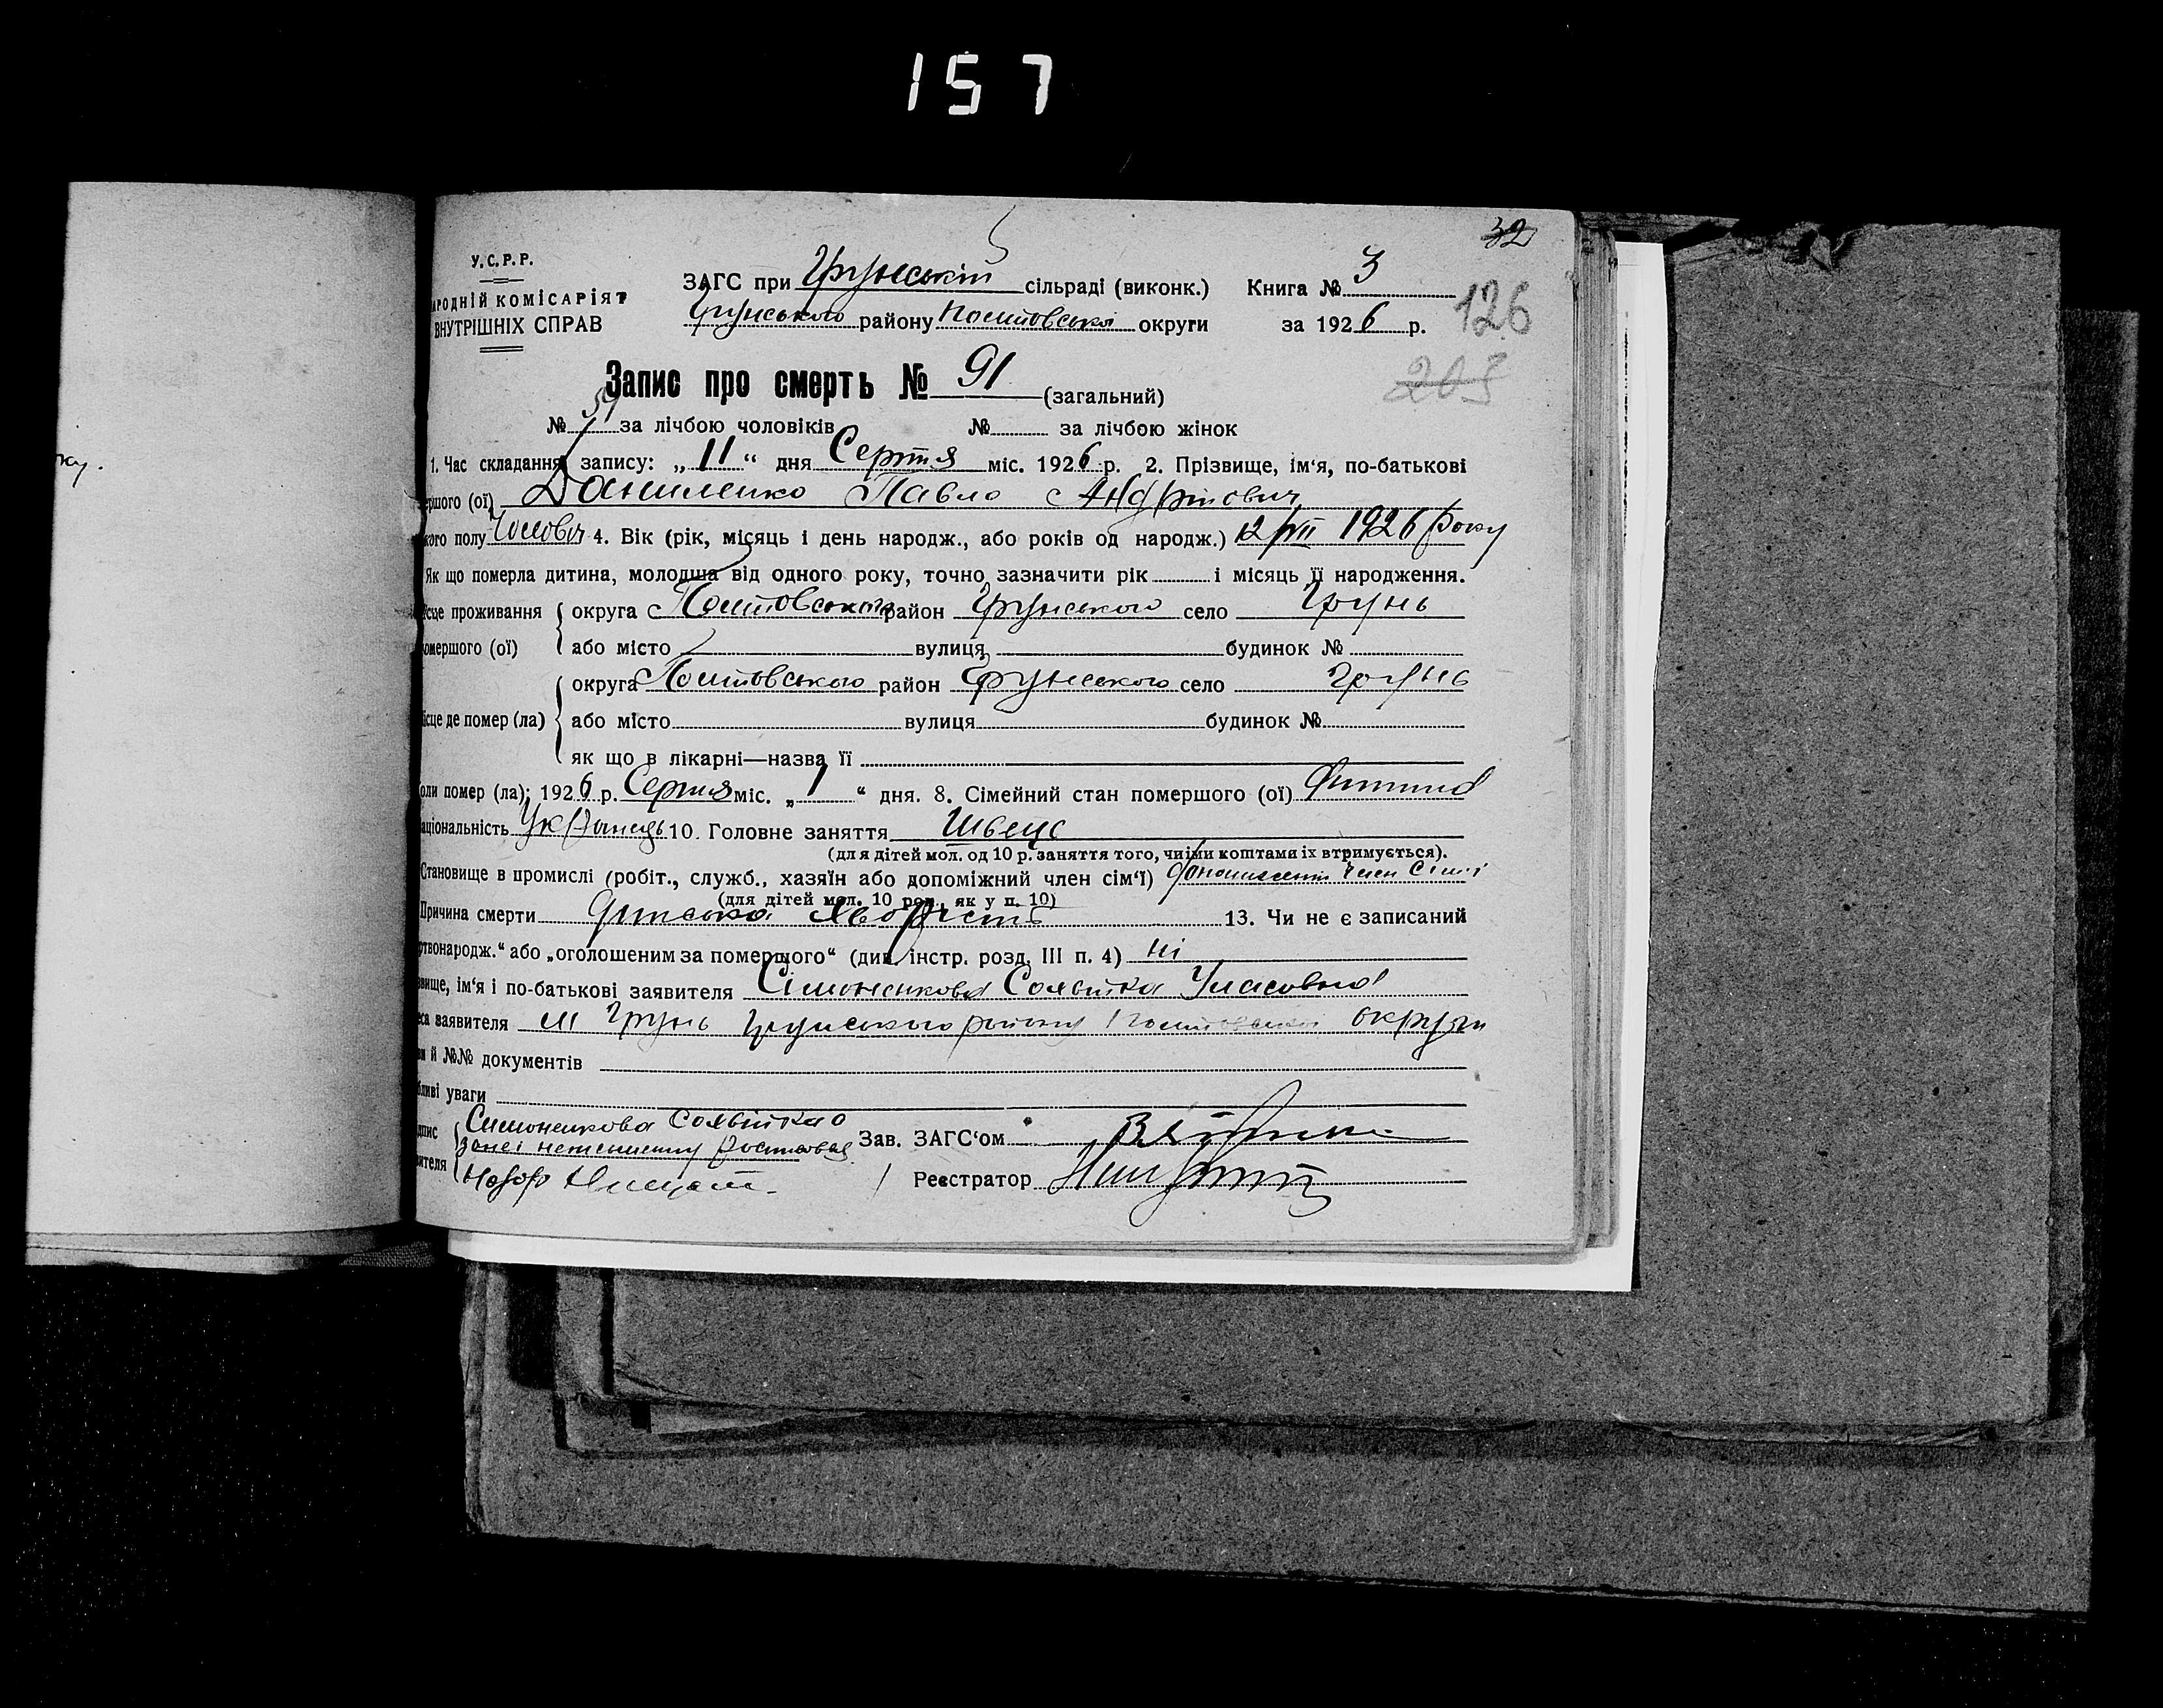 157
32
У.С.Р.Р.
РОДНІЙ КОМІСАРІЯТ
ВНУТРІШНІХ СПРАВ
ЗАГС при Грунській сільраді (виконк.) Книга № 3
Грунського району Полтовської округи за 1926 р.
126
203
Запис про смерть № 91 (загальний)
№ 51 за лічбою чоловіків № за лічбою жінок
1. Час складання запису: „11“ дня Серпня міс. 1926 р. 2. Прізвище, ім‘я, по-батькові
ку.
ершого (ої) Даниленко Павло Андрійович
кого полу Чоловіч 4. Вік (рік, місяць і день народж., або років од народж.) 12/VII 1926 року
Як що померла дитина, молодша від одного року, точно зазначити рік і місяць її народження.
ісце проживання округа Полтовського район Грунського село Грунь
омершого (ої) або місто вулиця будинок №
округа Полтовського район Грунського село Грунь
ісце де помер (ла) або місто вулиця будинок №
як що в лікарні—назва її
оли помер (ла); 1926 р. Серпня міс. „1“ дня. 8. Сімейний стан помершого (ої) Дитина
аціональність Українець 10. Головне заняття Швець
(для дітей мол. од 10 р. заняття того, чиїми коштами їх втримується).
Становище в промислі (робіт., служб., хазяїн або допоміжний член сім‘ї) допоміжний член Сімі
(для дітей мол. 10 рок., як у п. 10)
Причина смерти дитська хворість 13. Чи не є записаний
ртвонародж.“ або „оголошеним за померщого“ (див. інстр. розд. III п. 4) ні
вище, ім‘я і по-батькові заявителя Сімоненкова Уласовна
еса заявителя м Грунь Грунського району Полтовської округи
ви й №№ документів
бливі уваги
дпис Симоненкова
ителя занеї неписьмену
Зав. ЗАГС‘ом
Реєстратор